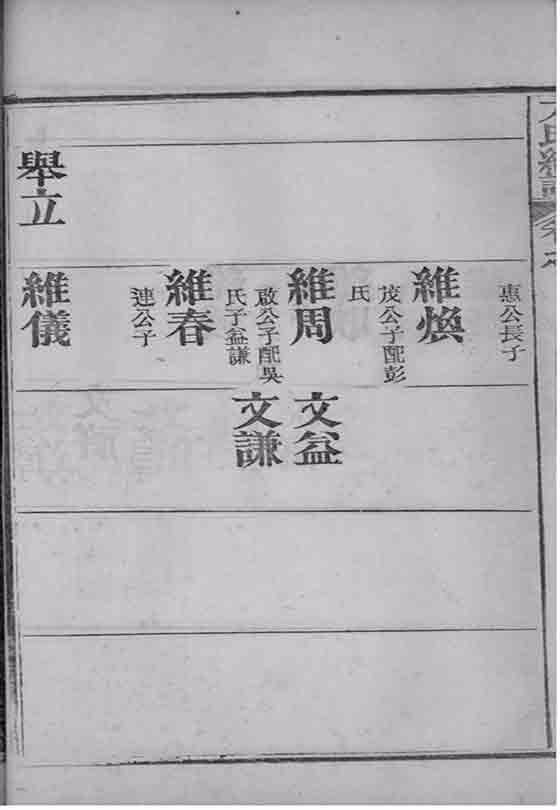 舉立
惠公長子
維煥
茂公子配彭
氏
維周
啟公子配吳
氏子益謙
維春
連公子
維儀
文益
文謙